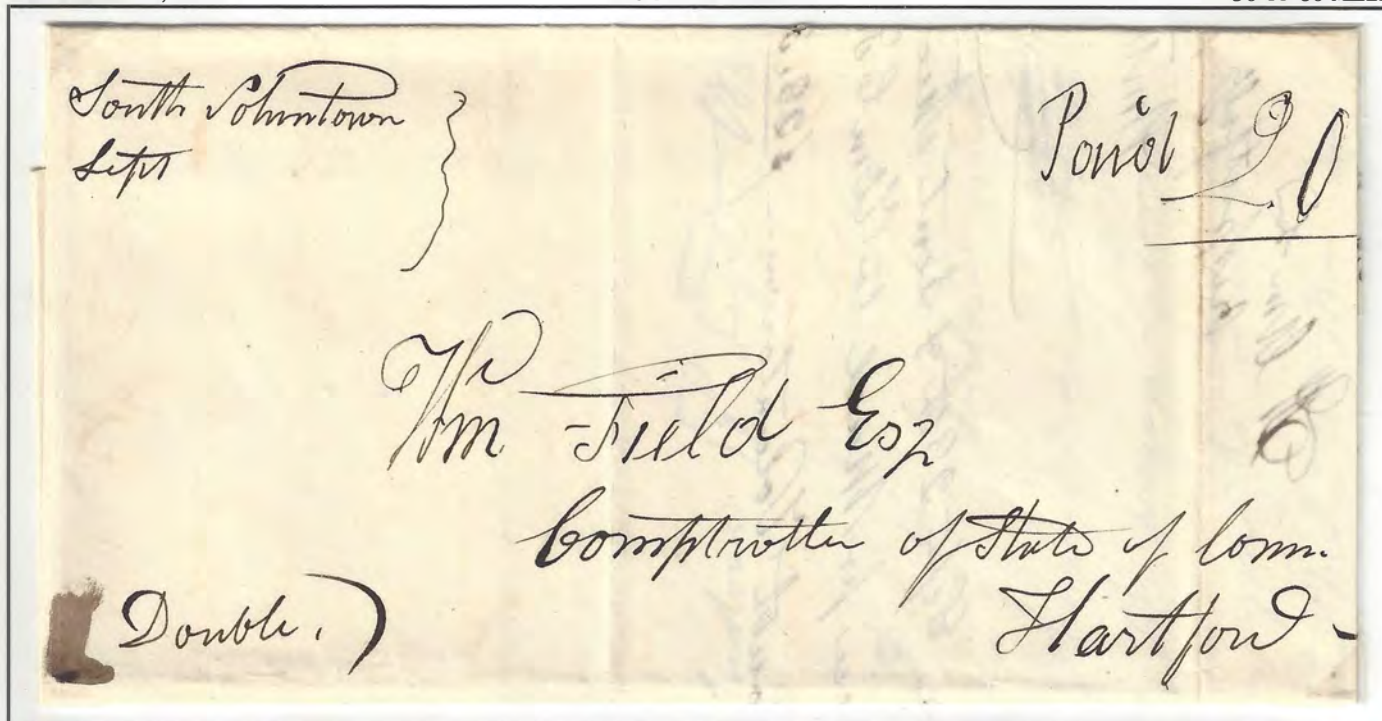 South Voluntown
Sept
Paid 20
Wm Field Esq
Comptroller of State of Conn.
Hartford -
Double.